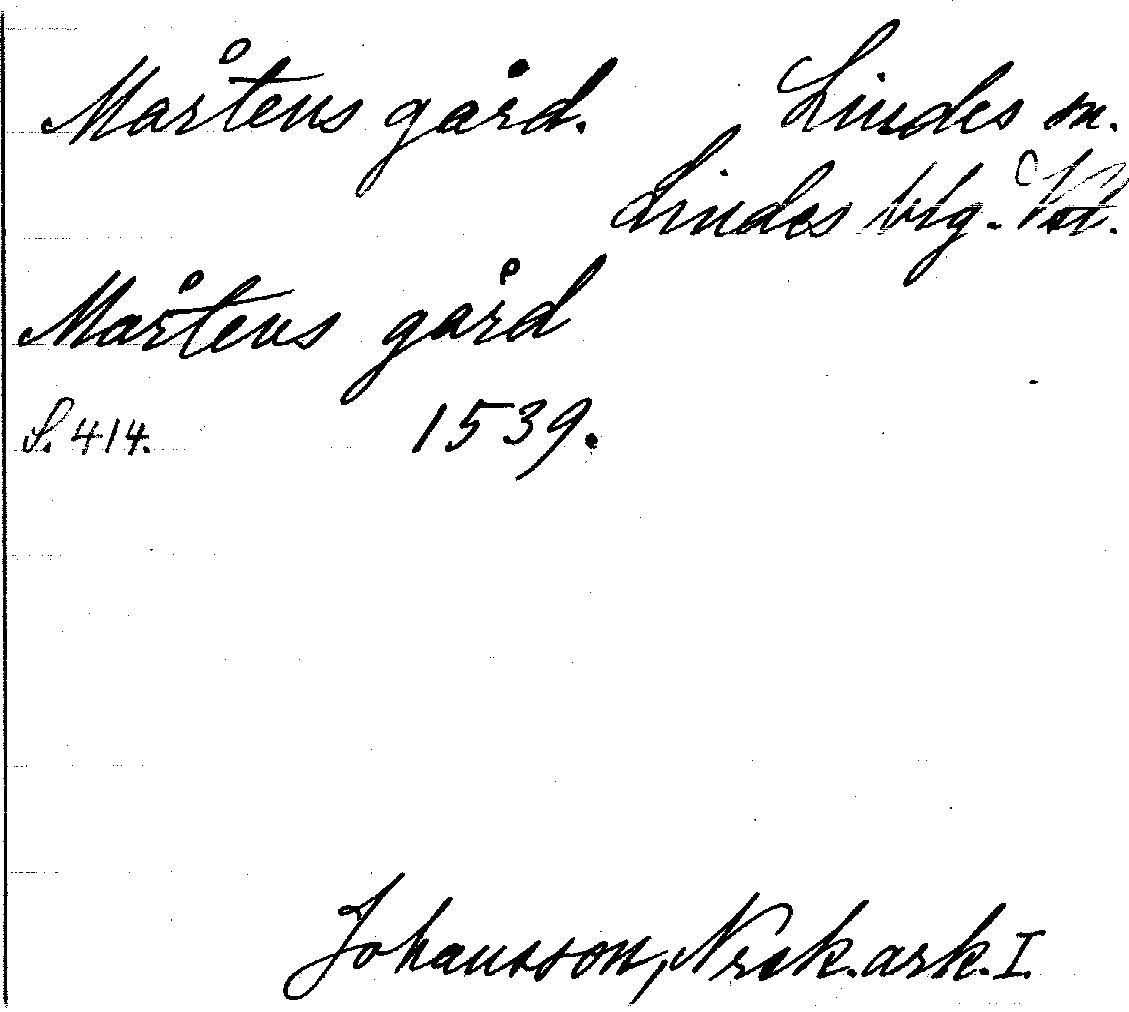 Mårtens gård. Lindes sn.
Lindes btg. Vstm.
Mårtens gård
S. 414. 1539.
Johansson, Norsk. ark. I.